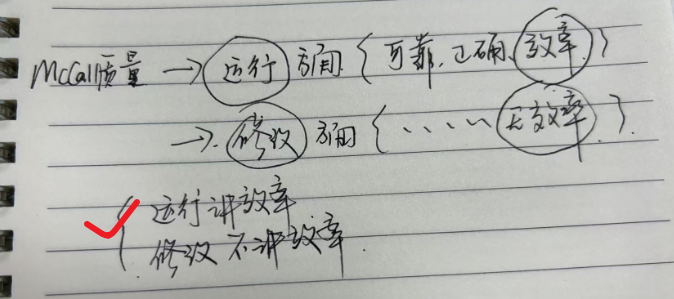 McCall质量 → 运行 方面 { 可靠、正确、效率 }
→ 修改 方面 { 、、、、 无效率 }
{ 运行讲效率
修改不讲效率